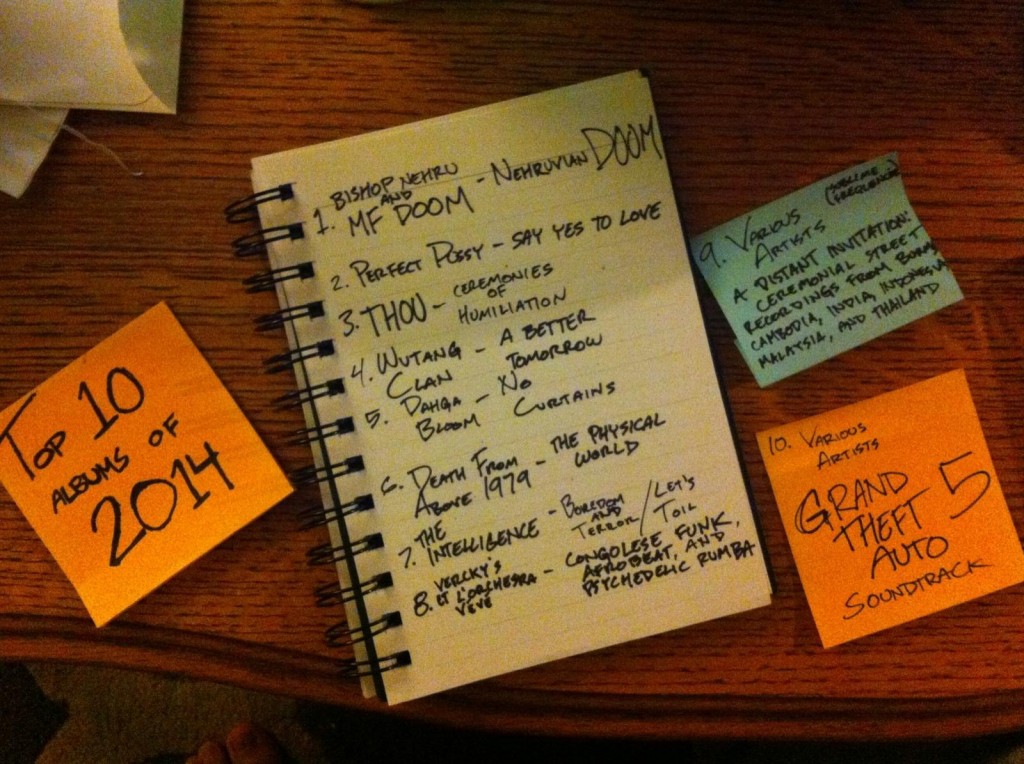 TOP 10
ALBUMS OF
2014
1. BISHOP NEHRU
AND
MF DOOM - NEHRUVIAN DOOM
2. PERFECT PUSSY - SAY YES TO LOVE
3. THOU - CEREMONIES
OF
HUMILIATION
4. WUTANG - A BETTER
CLAN TOMORROW
5. DAHGA - NO
BLOOM CURTAINS
6. DEATH FROM - THE PHYSICAL
ABOVE 1979 WORLD
7. THE
INTELLIGENCE - BOREDOM
AND
TERROR / LET'S
TOIL
8. VERCKY'S
ET L'ORCHESTRA - CONGOLESE FUNK,
VEVE AFROBEAT, AND
PSYCHEDELIC RUMBA
9. VARIOUS (SUBLIME
ARTISTS FREQUENCIES)
A DISTANT INVITATION:
CEREMONIAL STREET
RECORDINGS FROM BURMA,
CAMBODIA, INDIA, INDONESIA,
MALAYSIA, AND THAILAND
10. VARIOUS
ARTISTS
GRAND
THEFT 5
AUTO
SOUNDTRACK